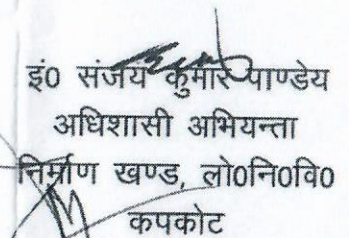 इं0 संजय कुमार पाण्डेय
अधिशासी अभियन्ता
निर्माण खण्ड, लो0नि0वि0
कपकोट